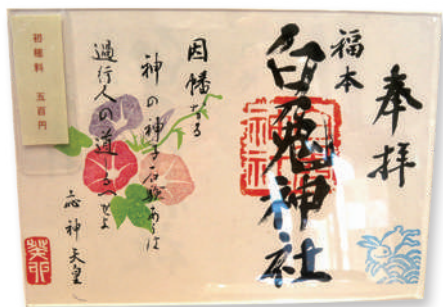 奉拝
福本
白兎神社
因幡なる
神の神子白兎あらは
過行人の道しるへせよ
応神天皇
癸卯
初穂料 五百円